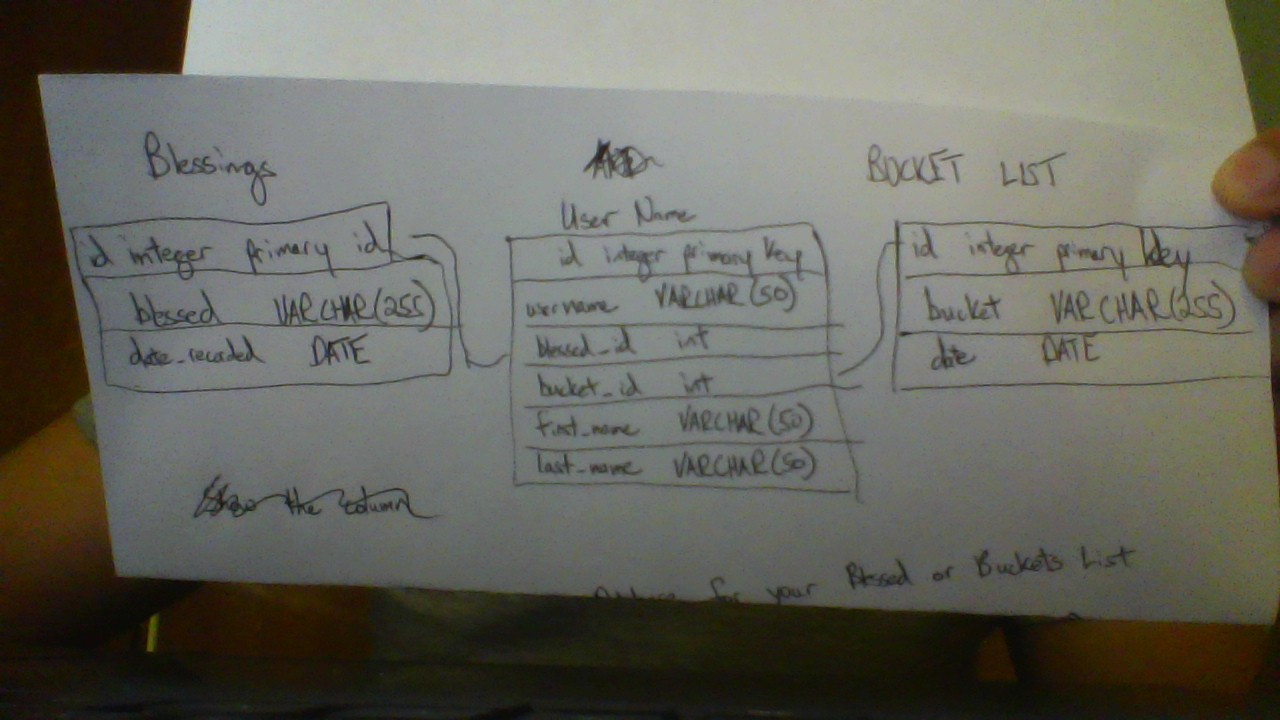 Blessings
id integer primary id
blessed VARCHAR(255)
date_recorded DATE
User Name
id integer primary key
username VARCHAR(50)
blessed_id int
bucket_id int
first_name VARCHAR(50)
last_name VARCHAR(50)
BUCKET LIST
id integer primary key
bucket VARCHAR(255)
date DATE
the column
for your Blessed or Buckets List